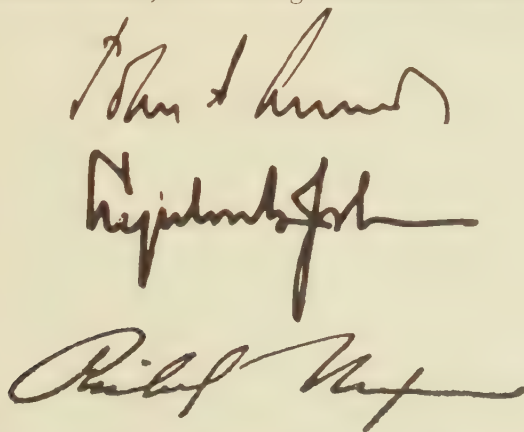 John F Kennedy
Lyndon B Johnson
Richard Nixon